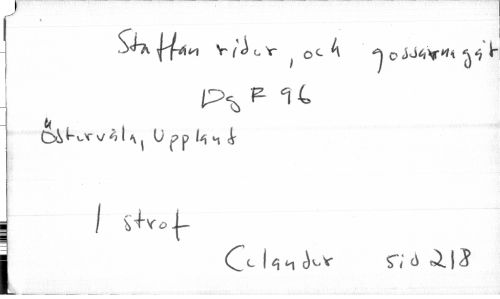 Staffan rider, och gossarna gåt
Dg F 96
Östervåla, Uppland
1 strof
Celander sid 218